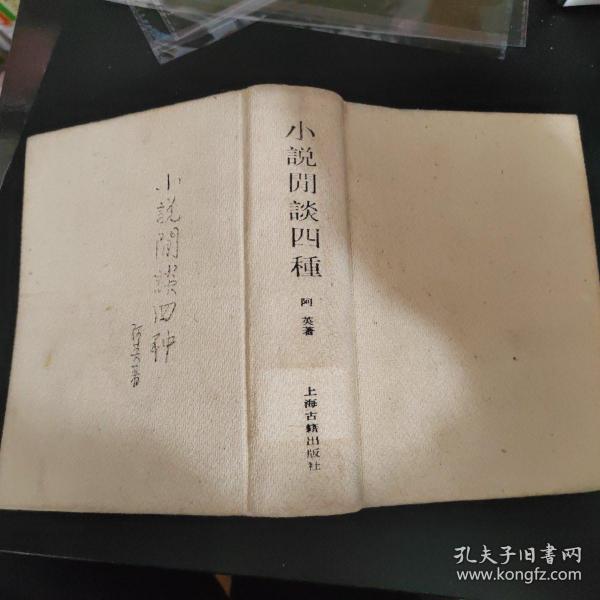 小説閒談四种
阿英著
小説閒談四種
阿英著
上海古籍出版社
孔夫子旧书网
www.kongfz.com